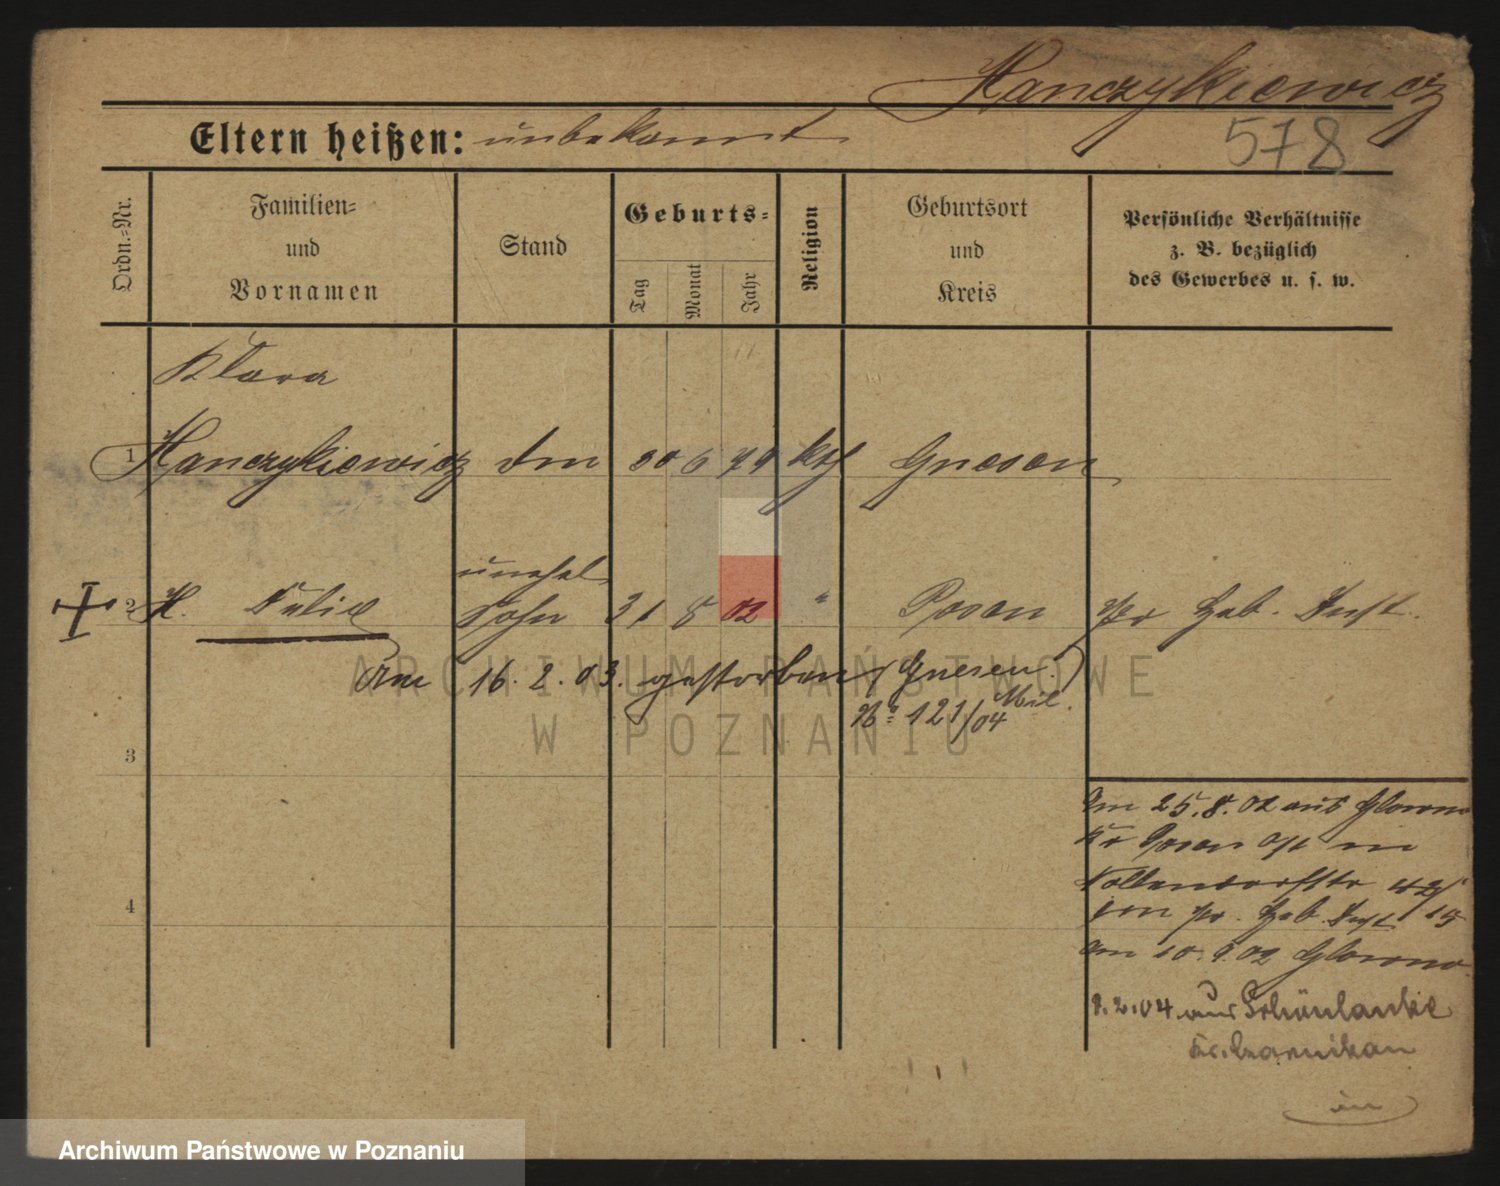 Hanczykiewicz
578
Eltern heißen: unbekannt
Ordn.-Nr.
Familien-
und
Vornamen
Stand
Geburts-
Tag
Monat
Jahr
Religion
Geburtsort
und
Kreis
Persönliche Verhältnisse
z. B. bezüglich
des Gewerbes u. s. w.
Klara
1 Hanczykiewicz 30 6 79 kth Gnesen
unehel
2 H. Felix Sohn 31 8 02 " Posen Pr Heb. Inst.
Am 16. 2. 03. gestorben (Gnesen)
No 121/04 Mil.
3
4
Am 25. 8. 02 aus Glowno
Kr Posen Ost in
Kollendorfstr 42/
Pr. Heb. Inst 15
am 10. 9. 02 Glowno
9. 2. 04 aus Schönlanke
Kr. Czarnikau
in
ARCHIWUM PAŃSTWOWE
W POZNANIU
Archiwum Państwowe w Poznaniu